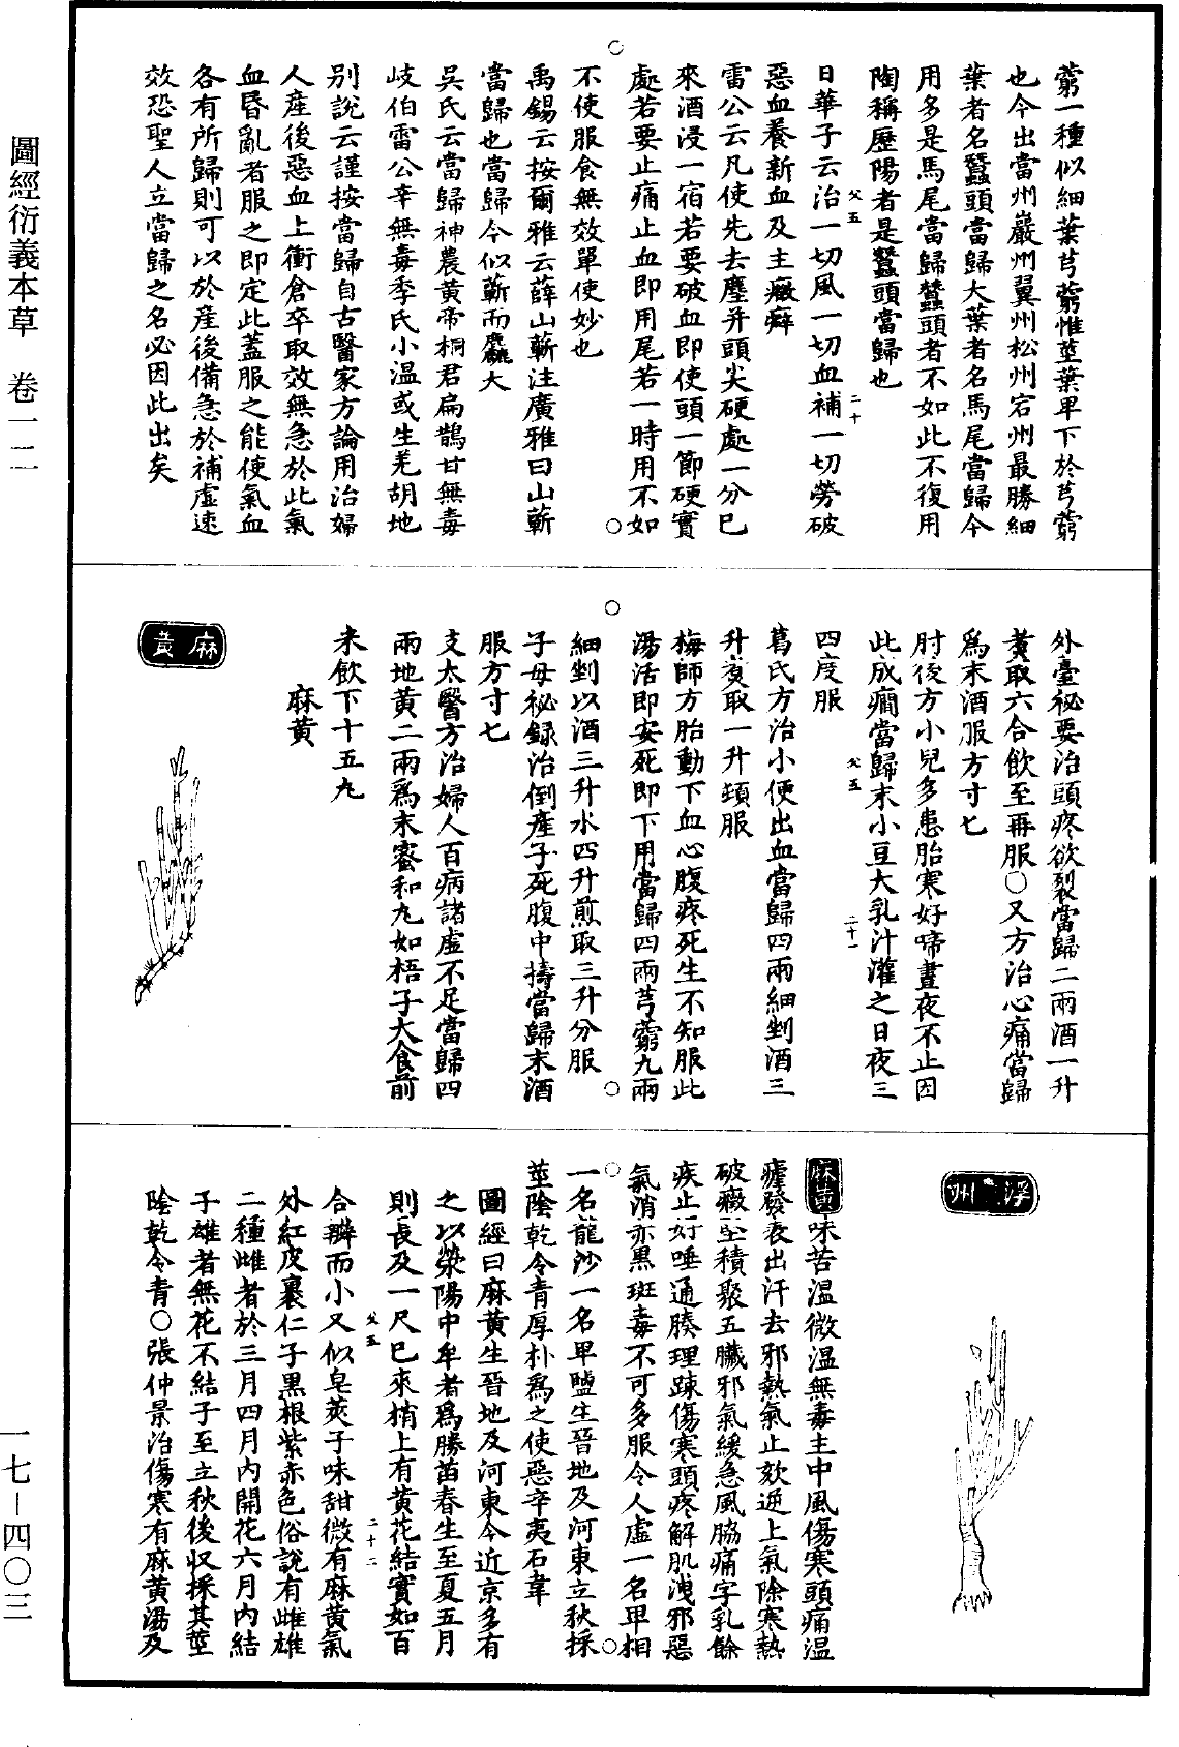 藭一種似細葉芎藭惟莖葉卑下於芎藭
也今出當州巖州翼州松州宕州最勝細
葉者名蠶頭當歸大葉者名馬尾當歸今
用多是馬尾當歸蠶頭者不如此不復用
陶稱歷陽者是蠶頭當歸也
日華子云治一切風一切血補一切勞破
惡血養新血及主癥癖
雷公云凡使先去塵并頭尖硬處一分已
來酒浸一宿若要破血即使頭一節硬實
處若要止痛止血即用尾若一時用不如
不使服食無效單使妙也
禹錫云按爾雅云薜山蘄注廣雅曰山蘄
當歸也當歸今似蘄而麄大
吳氏云當歸神農黃帝桐君扁鵲甘無毒
岐伯雷公辛無毒季氏小温或生羌胡地
别說云謹按當歸自古醫家方論用治婦
人産後惡血上衝倉卒取效無急於此氣
血昏亂者服之即定此蓋服之能使氣血
各有所歸則可以於産後備急於補虛速
效恐聖人立當歸之名必因此出矣
外臺祕要治頭疼欲裂當歸二兩酒一升
煑取六合飲至再服○又方治心痛當歸
爲末酒服方寸匕
肘後方小兒多患胎寒好啼晝夜不止因
此成癎當歸末小豆大乳汁灌之日夜三
四度服
葛氏方治小便出血當歸四兩細剉酒三
升煑取一升頓服
梅師方胎動下血心腹疼死生不知服此
湯活即安死即下用當歸四兩芎藭九兩
細剉以酒三升水四升煎取三升分服
子母祕録治倒産子死腹中擣當歸末酒
服方寸匕
支太醫方治婦人百病諸虛不足當歸四
兩地黃二兩爲末蜜和丸如梧子大食前
米飲下十五丸
麻黃
麻黃
浮州
麻黃味苦温微温無毒主中風傷寒頭痛温
瘧發表出汗去邪熱氣止欬逆上氣除寒熱
破癥堅積聚五臟邪氣緩急風脇痛字乳餘
疾止好唾通腠理踈傷寒頭疼解肌洩邪惡
氣消赤黑斑毒不可多服令人虛一名卑相
一名龍沙一名卑鹽生晉地及河東立秋採
莖陰乾令青厚朴爲之使惡辛夷石韋
圖經曰麻黃生晉地及河東今近京多有
之以滎陽中牟者爲勝苗春生至夏五月
則長及一尺已來梢上有黃花結實如百
合瓣而小又似皂莢子味甜微有麻黃氣
外紅皮裹仁子黑根紫赤色俗說有雌雄
二種雌者於三月四月内開花六月内結
子雄者無花不結子至立秋後收採其莖
陰乾令青○張仲景治傷寒有麻黃湯及
圖經衍義本草 卷一二
一七—四〇三